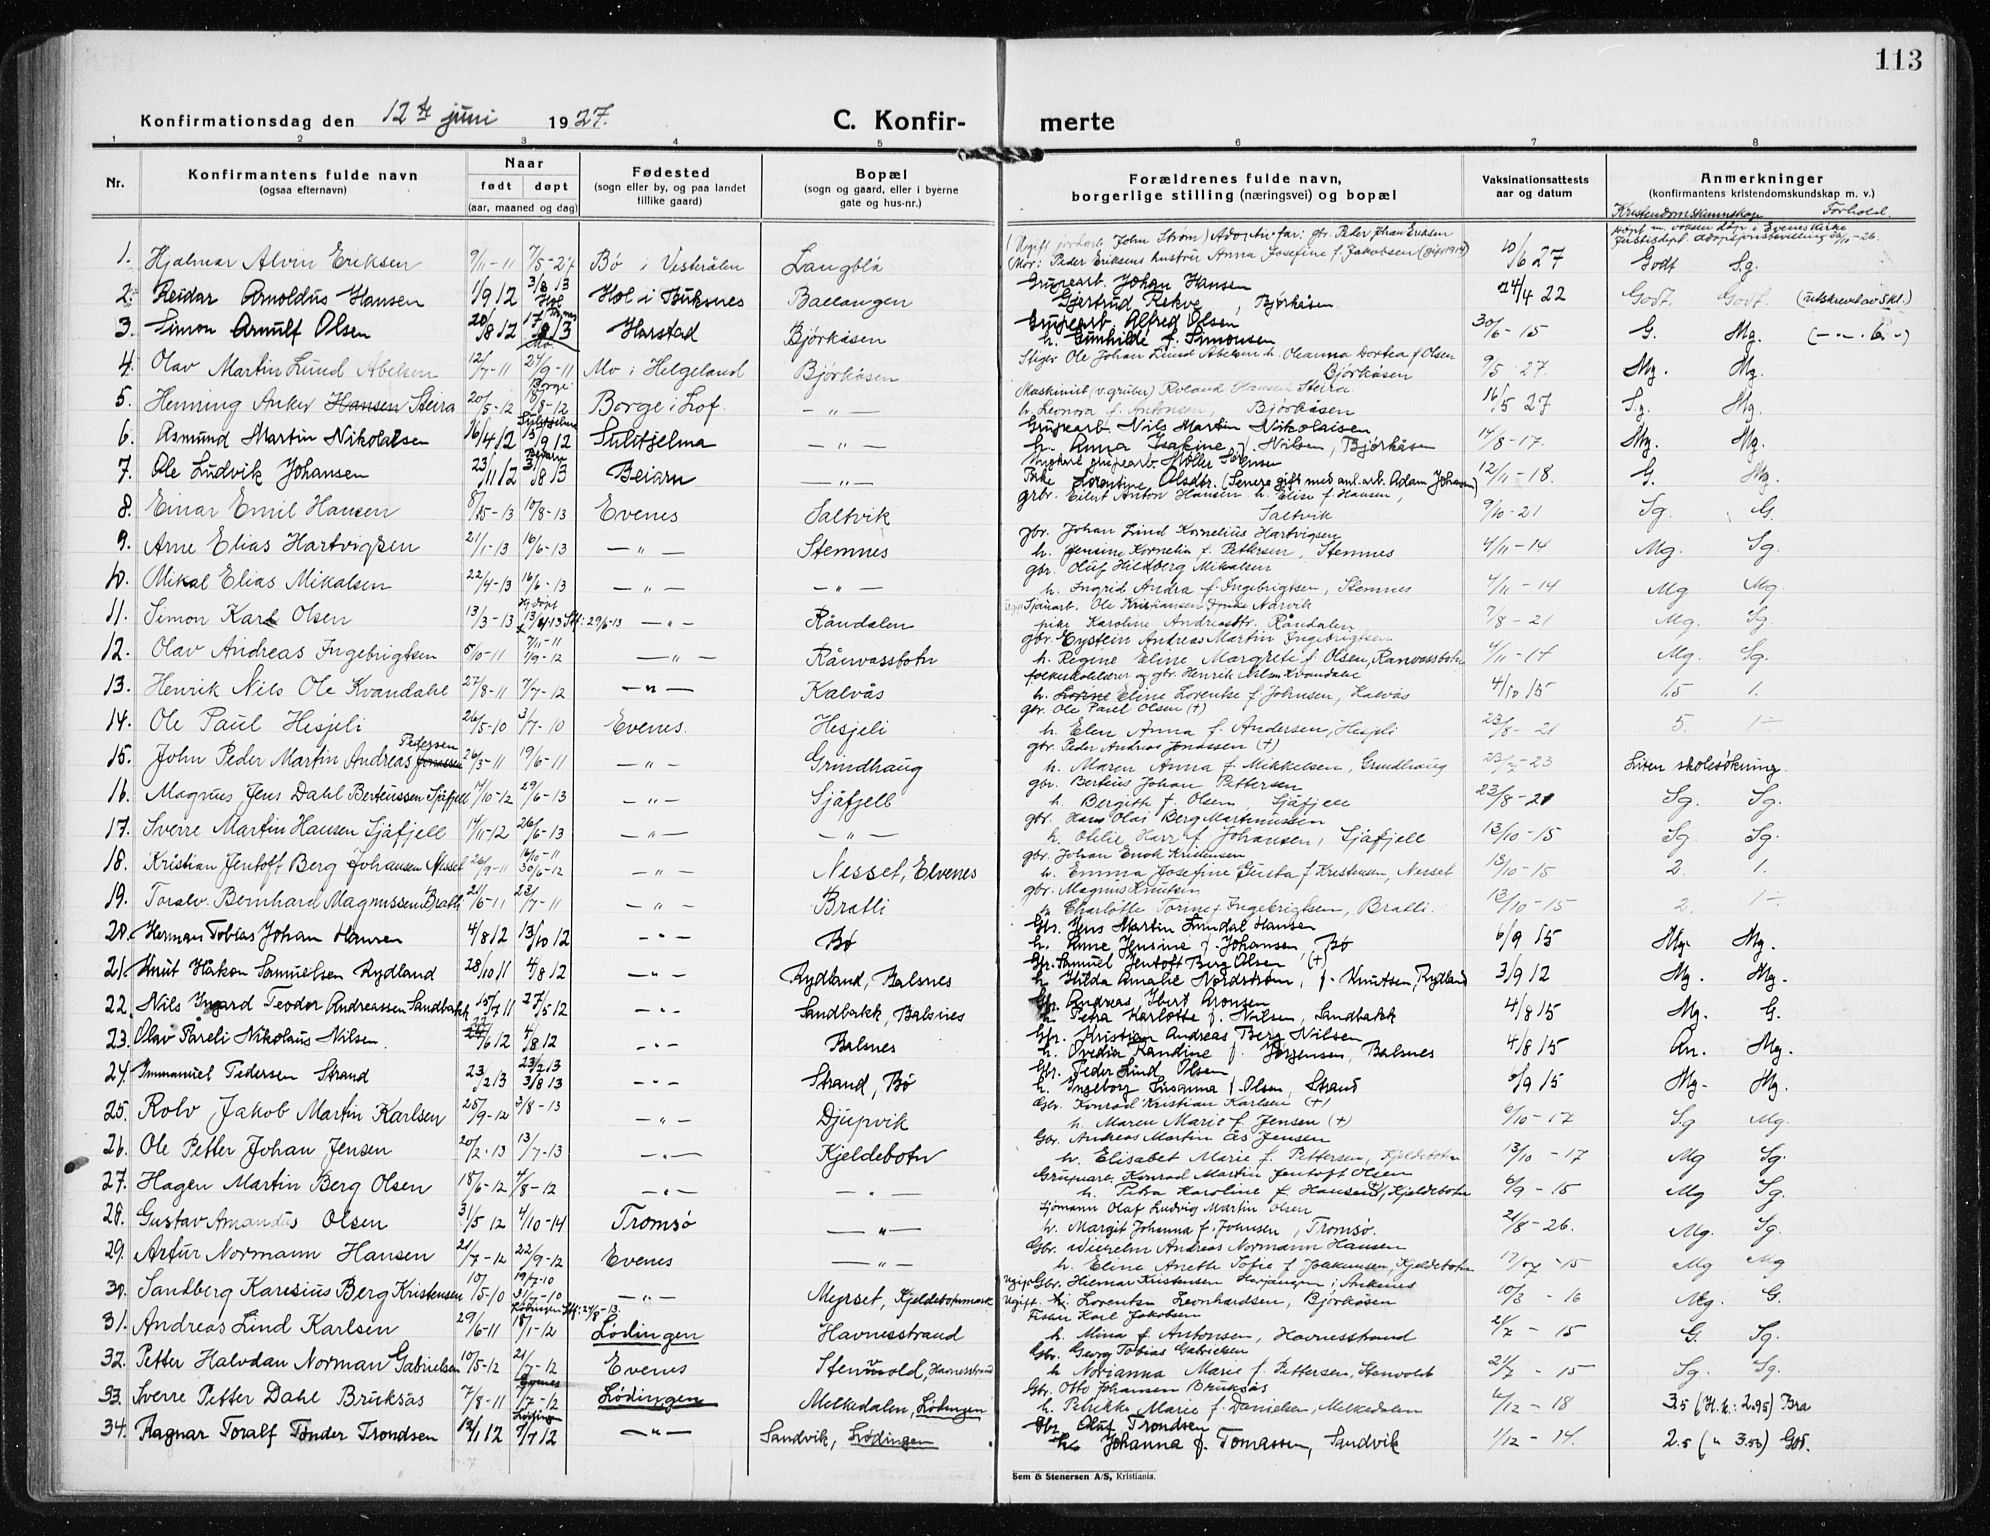 113
Konfirmationsdag den 12te juni 1927. C. Konfirmerte
1 2 3 4 5 6 7 8
Nr. Konfirmantens fulde navn (ogsaa efternavn) Naar født døpt (aar, maaned og dag) Fødested (sogn eller by, og paa landet tillike gaard) Bopæl (sogn og gaard, eller i byerne gate og hus-nr.) Forældrenes fulde navn, borgerlige stilling (næringsvei) og bopæl Vaksinationsattests aar og datum Anmerkninger (konfirmantens kristendomskundskap m. v.)
Kristendomskunnskap Forhold.
1. Hjalmar Alvin Eriksen 9/11-11 7/5-27 Bø i Vesterålen Langblå (Ugift John Strøm) Adoptivfar: gbr. Peder Johan Eriksen 10/6 27 Godt S.g.
Mor: Peder Eriksens hustru Anna Josefine f. Jakobsen (gift 1914)
2. Reidar Arnoldus Hansen 1/9 12 3/8 13 Hol i Buksnes Ballangen Grubearb. Johan Hansen 24/4 22 Godt. Godt. (utskrevet av skl.)
Gjertrud Rekve, Bjørkåsen
3. Simon Arnulf Olsen 20/8 12 Harstad Bjørkåsen Grubearb. Alfred Olsen 30/6-15 G. Mg.
h. Gunhilde f. Simonsen
4. Olav Martin Lund Abelsen 12/7-11 24/9-11 Mo i Helgeland Bjørkåsen Stiger Ole Johan Lund Abelsen h. Oleanna Dortea f Olsen 9/5 27 Mg. Mg.
Bjørkåsen
5. Henning Anker Hansen Steira 20/5-12 Borge 8-12 Borge i Lof. -"- Maskinist (v. gruber) Roland Hansen Steira 16/5 27 S.g. Mg.
h. Leonora f. Antonsen, Bjørkåsen
6. Asmund Martin Nikolaisen 16/4 12 Sulitjelma 15/9 12 Sulitjelma -"- Grubearb. Nils Martin Nikolaisen 14/8-17. Mg. Mg.
h. Anna Isakine f. Nilsen, Bjørkåsen
7. Ole Ludvik Johansen 23/11 12 Beiarn -"- Ungkarl grubearb. Møller Sørensen 12/11-18. G. Mg.
Pike Lorentine Olsdtr. (Senere gift med anl.arb. Adam Johansen)
8. Einar Emil Hansen 10/8-13 Evenes Saltvik grbr. Eilert Anton Hansen h. Elise f. Hansen, 9/10-21 Sg. G.
Saltvik
9. Arne Elias Hartvigsen 21/1-13 16/6-13 -"- Stemnes gbr. Johan Lind Kornelius Hartvigsen 4/11-14 Mg. Sg.
h. Jensine Kornelia f. Pettersen, Stemnes
10. Mikal Elias Mikalsen 22/4-13 16/6-13 -"- -"- gbr. Oluf Hilberg Mikalsen 4/11-14 Mg Mg.
h. Ingrid Andra f. Ingebrigtsen, Stemnes
11. Simon Karl Olsen 13/3-13 Stf: 29/6-13 -"- Råndalen Sjauarb. Ole Kristiansen Narvik 7/8-21 Mg. Sg.
pike Karoline Andreasdtr. Råndalen
12. Olav Andreas Ingebrigtsen 5/10-11 7/11-11 1/9-12 -"- Rånvassbotn gbr. Eystein Andreas Martin Ingebrigtsen 4/11-14 Mg. Sg.
h. Regine Eline Margrete f Olsen, Ranvassbotn
13. Henrik Nils Ole Kvandahl 27/8-11 7/7-12 -"- Kalvås folkeskolelærer og gbr. Henrik Nilsen Kvandahl 4/10 15 1.5 1.
h. Lorne Eline Lorentse f. Johnsen, Kalvås
14. Ole Paul Hesjeli 26/5-10 3/7-10 Evenes. Hesjeli gbr. Ole Paul Olsen (+) 23/8-21 5. 1-
h. Elen Anna f. Andersen, Hesjeli
15. John Peder Martin Andreas Jonassen Pedersen 26/3-11 19/6-11 -"- Grundhaug gbr. Peder Andreas Jonassen (+) Liten skolesøkning.
h. Maren Anna f. Mikkelsen, Grundhaug
16. Magnus Jens Dahl Berteussen Sjåfjell 7/10-12 29/6-13 -"- Sjåfjell gbr. Berteus Johan Pettersen 23/8-21 Sg. Sg.
h. Bergitte f. Olsen, Sjåfjell
17. Sverre Martin Hansen Sjåfjell 14/11-12 26/6-13 -"- -"- gbr. Hans Olai Berg Martinussen 13/10-15 Sg. Sg.
h. Otelie Harr f. Johansen, Sjåfjell
18. Kristian Jentoft Berg Johansen Nesset 26/9-11 16/10-11 30/6-12 -"- Nesset, Elvenes gbr. Johan Enok Kristensen 13/10-15 2. 1.
h. Emma Josefine Gusta f Kristensen, Nesset
19. Toralv Bernhard Magnussen Bratli 21/6-11 23/7-11 -"- Bratli gbr. Magnus Knutsen 13/10-15 2. 1-
h. Charlotte Torine f. Ingebrigtsen, Bratli.
20. Herman Tobias Johan Hansen 4/8 12 13/10 12 -"- Bø Gbr. Jens Martin Lundal Hansen 6/9 15 Mg. Mg.
h. Anne Jensine f. Johansen, Bø
21. Knut Håkon Samuelsen Rydland 28/10 11 4/8 12 -"- Rydland, Balsnes Gbr. Samuel Jentoft Berg Olsen (+) 3/9 12 Mg. Mg.
h. Hilda Amalie Nordstrøm, f. Knutsen, Rydland
22. Nils Ingard Teodor Andreassen Sandbakk 15/7 11 27/5 12 -"- Sandbakk, Balsnes Gbr. Andreas Ibert Aronsen 4/8 15 Mg. G.
h. Petra Karlotte f. Nilsen, Sandbakk
23. Olav Pareli Nikolaus Nilsen. 6 12 4/8 12 -"- Balsnes Gbr. Kristian Andreas Berg Nilsen 4/8 15 An. Mg.
h. Ovedia Randine f. Jørgensen, Balsnes
24. Immanuel Pedersen Strand 23/2 13 23/2 13 3/8 13 -"- Strand, Bø Gbr. Peder Lind Olsen 9 15 Mg- Mg.
h. Ingeborg Susanna f Olsen, Strand
25. Rolv Jakob Martin Karlsen 25/9-12 3/8-13 -"- Djupvik Gbr. Konrad Kristian Karlsen (+) 6/10-17 S.g Mg.
h. Maren Marie f. Jensen (+)
26. Ole Petter Johan Jensen 20/2-13 13/7-13 -"- Kjeldebotn Gbr. Andreas Martin Ås Jensen 13/10-17 Mg Sg.
h. Elisabet Marie f. Pettersen, Kjeldebotn
27. Hagen Martin Berg Olsen 18/6-12 4/8-12 -"- -"- Grubearb. Konrad Martin Jentoft Olsen 6/9-15 Mg Sg.
h. Petra Karoline f. Hansen, Kjeldebotn
28. Gustav Amandus Olsen 31/5 12 4/10-14 Tromsø -"- Sjømann Olaf Ludvig Martin Olsen 21/8-26. Mg. Sg.
h. Margit Johanna f. Johnsen, Tromsø.
29. Artur Normann Hansen 21/7-12 22/9-12 Evenes -"- Gbr. Wilhelm Andreas Normann Hansen -15 Mg Mg
h. Eline Anette Sofie f. Joakimsen, Kjeldebotn
30. Sandberg Karesius Berg Kristensen 10/5-10 19/7-10 31/7-10 -"- Myrset, Kjeldebotnmark Ugift Gbr. Hilmar Kristensen Herjangen i Ankenes 10/8-16 Mg. G.
Ugift. Lorentse Leonhardsen, Bjørkåsen
31. Andreas Lind Karlsen 29/6-11 18/1-12 Stf: 24/8-13. Lødingen Havnesstrand Fisker Karl Jakobsen 21/7-15 G. Sg.
h. Mina f. Antonsen, Havnesstrand
32. Petter Halvdan Norman Gabrielsen 10/5-12 21/7-12 Evenes Stenvold, Havnesstrand Gbr. Georg Tobias Gabrielsen 21/7-15 Sg. Sg.
h Norianna Marie f. Pettersen, Stenvold
33. Sverre Petter Dahl Bruksås 7/8-11 Evenes 7/7-12 Lødingen Melkedalen, Lødingen Gbr. Otto Johansen Bruksås 4/12-18 3.5 (H.k: 2.95) Bra
h. Petrikke Marie f. Danielsen, Melkedalen
34. Ragnar Toralf Tønder Trondsen 12/1 12 Lødingen 7/7 12 -"- Sandvik, Lødingen Gbr. Oluf Trondsen 1/12-14. 2.5 (" 3.50) God.
h. Johanna f. Tomassen, Sandvik
Sem & Stenersen A/S, Kristiania.